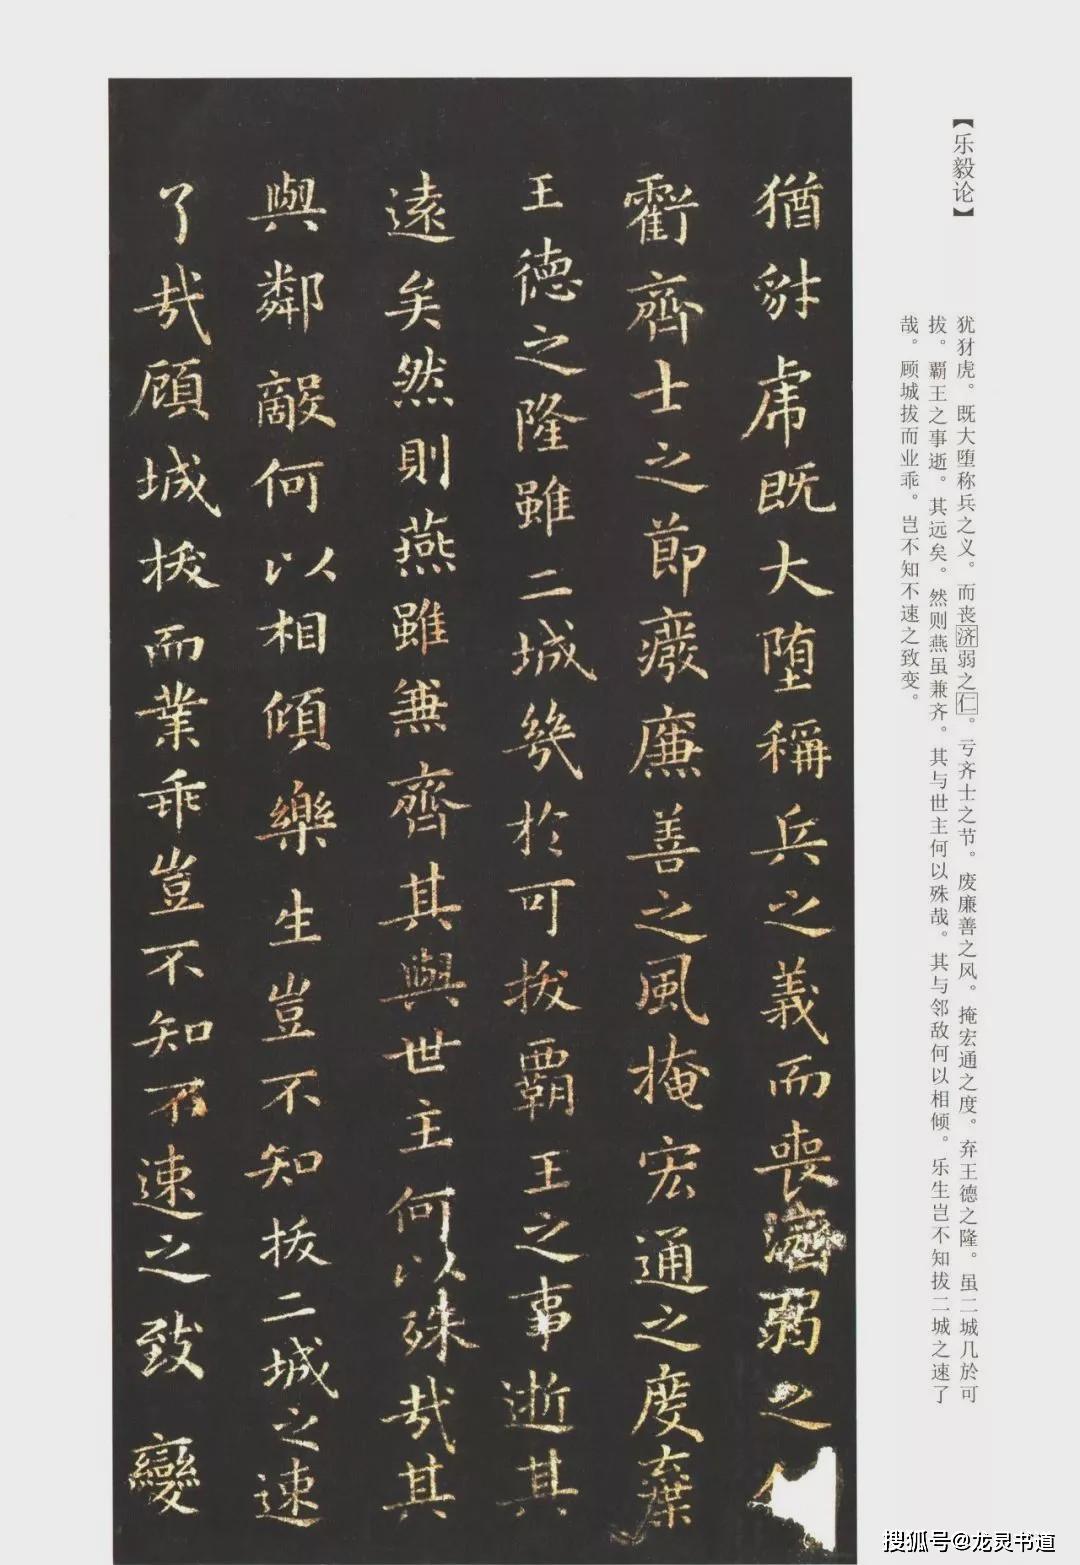 【乐毅论】
犹犲虎。既大堕称兵之义。而丧济弱之仁。亏齐士之节。废廉善之风。掩宏通之度。弃王德之隆。虽二城几於可
拔。霸王之事逝。其远矣。然则燕虽兼齐。其与世主何以殊哉。其与邻敌何以相倾。乐生岂不知拔二城之速了
哉。顾城拔而业乖。岂不知不速之致变。
猶豺虎既大堕稱兵之義而喪濟弱之
虧齊士之節廢廉善之風掩宏通之度棄
王德之隆雖二城幾於可拔霸王之事逝其
遠矣然則燕雖兼齊其與世主何以殊哉其
與鄰敵何以相傾樂生豈不知拔二城之速
了哉顧城拔而業乖豈不知不速之致變
搜狐号@龙灵书道